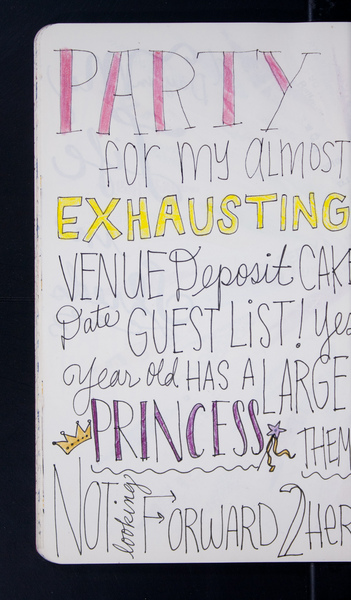 PARTY
for my almost
EXHAUSTING
VENUE Deposit CAKE
Date GUEST LIST! yes
Year old HAS A LARGE
PRINCESS THEM
NOT looking FORWARD 2 Her